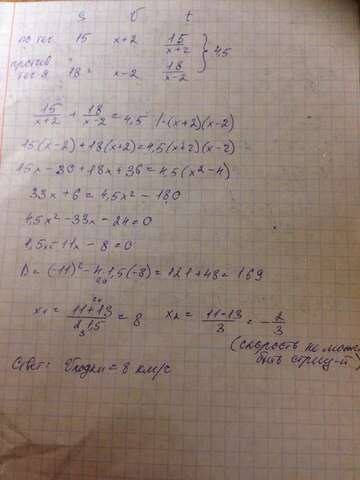 S V t
по теч. 15 x+2 15/(x+2)
против теч-я 18 x-2 18/(x-2) } 4,5
15/(x+2) + 18/(x-2) = 4,5 |·(x+2)(x-2)
15(x-2)+18(x+2)=4,5(x+2)(x-2)
15x - 30 + 18x + 36 = 4,5(x²-4)
33x + 6 = 4,5x² - 18
4,5x² - 33x - 24 = 0
1,5x² - 11x - 8 = 0
D = (-11)² - 4·1,5(-8) = 121 + 48 = 169
x₁ = (11+13)/(2·1,5) = 8 x₂ = (11-13)/3 = -2/3
(скорость не может
быть отриц-й)
Ответ: Vлодки = 8 км/с